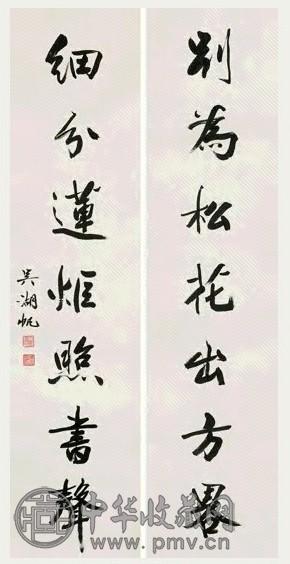 別為松花出方略
細分蓮炬照書聲
吳湖帆
中华收藏网
www.pmv.cn